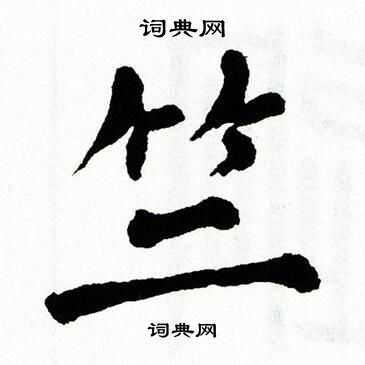 词典网
竺
词典网